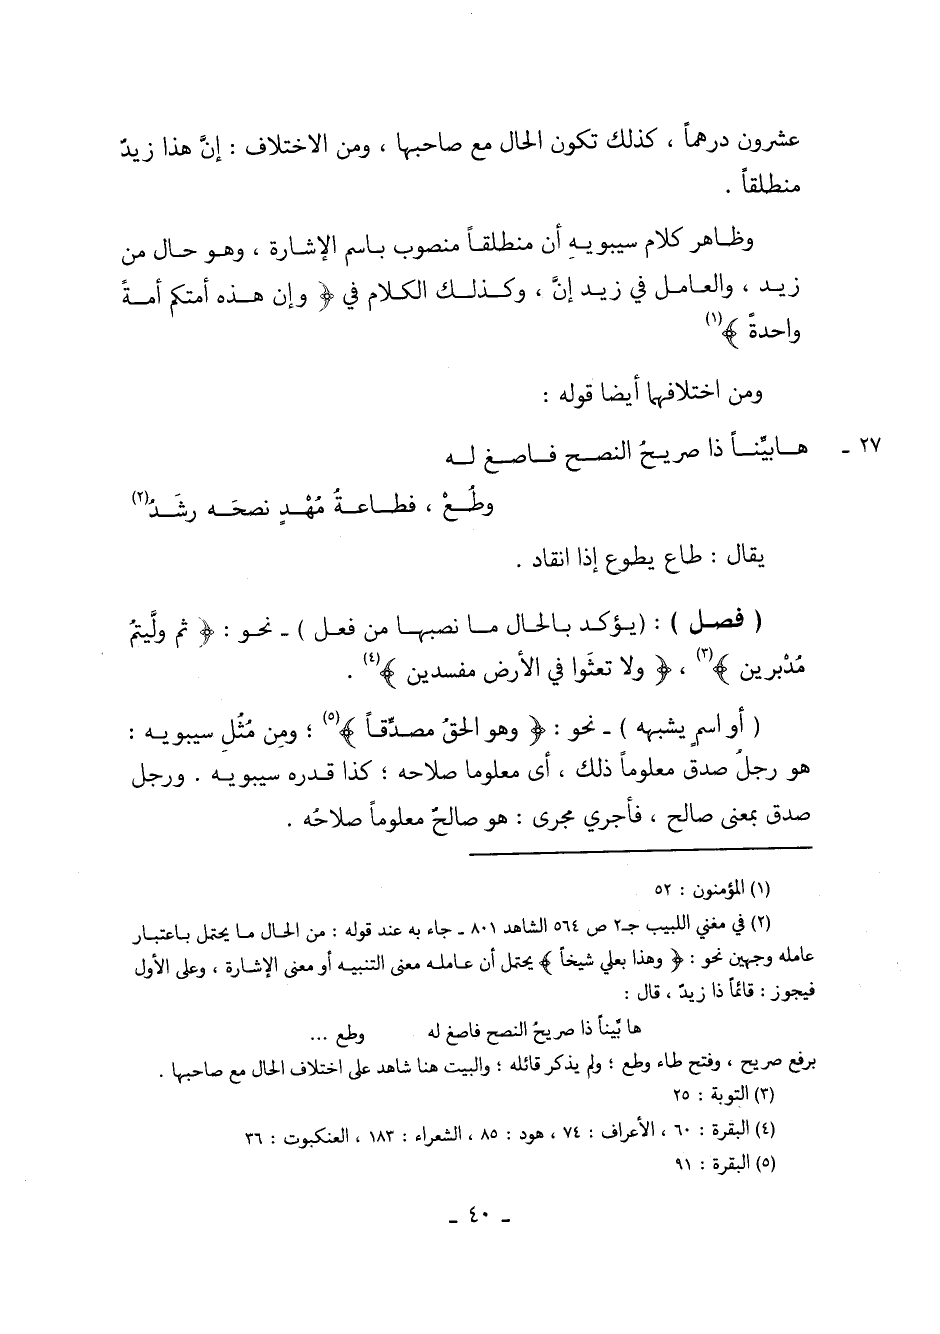 عشرون درهماً ، كذلك تكون الحال مع صاحبها ، ومن الاختلاف : إنَّ هذا زيدٌ
منطلقاً .
وظاهر كلام سيبويه أن منطلقاً منصوب باسم الإشارة ، وهو حال من
زيد ، والعامل في زيد إنَّ ، وكذلك الكلام في ﴿ وإن هذه أمتكم أمةً
واحدةً ﴾(١)
ومن اختلافها أيضا قوله :
٢٧ ـ هابيِّناً ذا صريحُ النصح فاصغ له
وطُعْ ، فطاعةُ مُهْدٍ نصحَه رشَدُ(٢)
يقال : طاع يطوع إذا انقاد .
( فصل ) : (يؤكد بالحال ما نصبها من فعل ) ـ نحو : ﴿ ثم ولَّيتمُ
مُدْبرين ﴾(٣) ، ﴿ ولا تعثَوا في الأرض مفسدين ﴾(٤) .
( أو اسمٍ يشبهه ) ـ نحو : ﴿ وهو الحقُ مصدِّقاً ﴾(٥) ؛ ومِن مُثُلِ سيبويه :
هو رجلُ صدق معلوماً ذلك ، أى معلوما صلاحه ؛ كذا قدره سيبويه . ورجل
صدق بمعنى صالح ، فأجري مجرى : هو صالحٌ معلوماً صلاحُه .
(١) المؤمنون : ٥٢
(٢) في مغني اللبيب جـ٢ ص ٥٦٤ الشاهد ٨٠١ ـ جاء به عند قوله : من الحال ما يحتمل باعتبار
عامله وجهين نحو : ﴿ وهذا بعلي شيخاً ﴾ يحتمل أن عامله معنى التنبيه أو معنى الإشارة ، وعلى الأول
فيجوز : قائماً ذا زيدٌ ، قال :
ها بيِّناً ذا صريحُ النصح فاصغ له وطع ...
برفع صريح ، وفتح طاء وطع ؛ ولم يذكر قائله ؛ والبيت هنا شاهد على اختلاف الحال مع صاحبها .
(٣) التوبة : ٢٥
(٤) البقرة : ٦٠ ، الأعراف : ٧٤ ، هود : ٨٥ ، الشعراء : ١٨٣ ، العنكبوت : ٣٦
(٥) البقرة : ٩١
ـ ٤٠ ـ